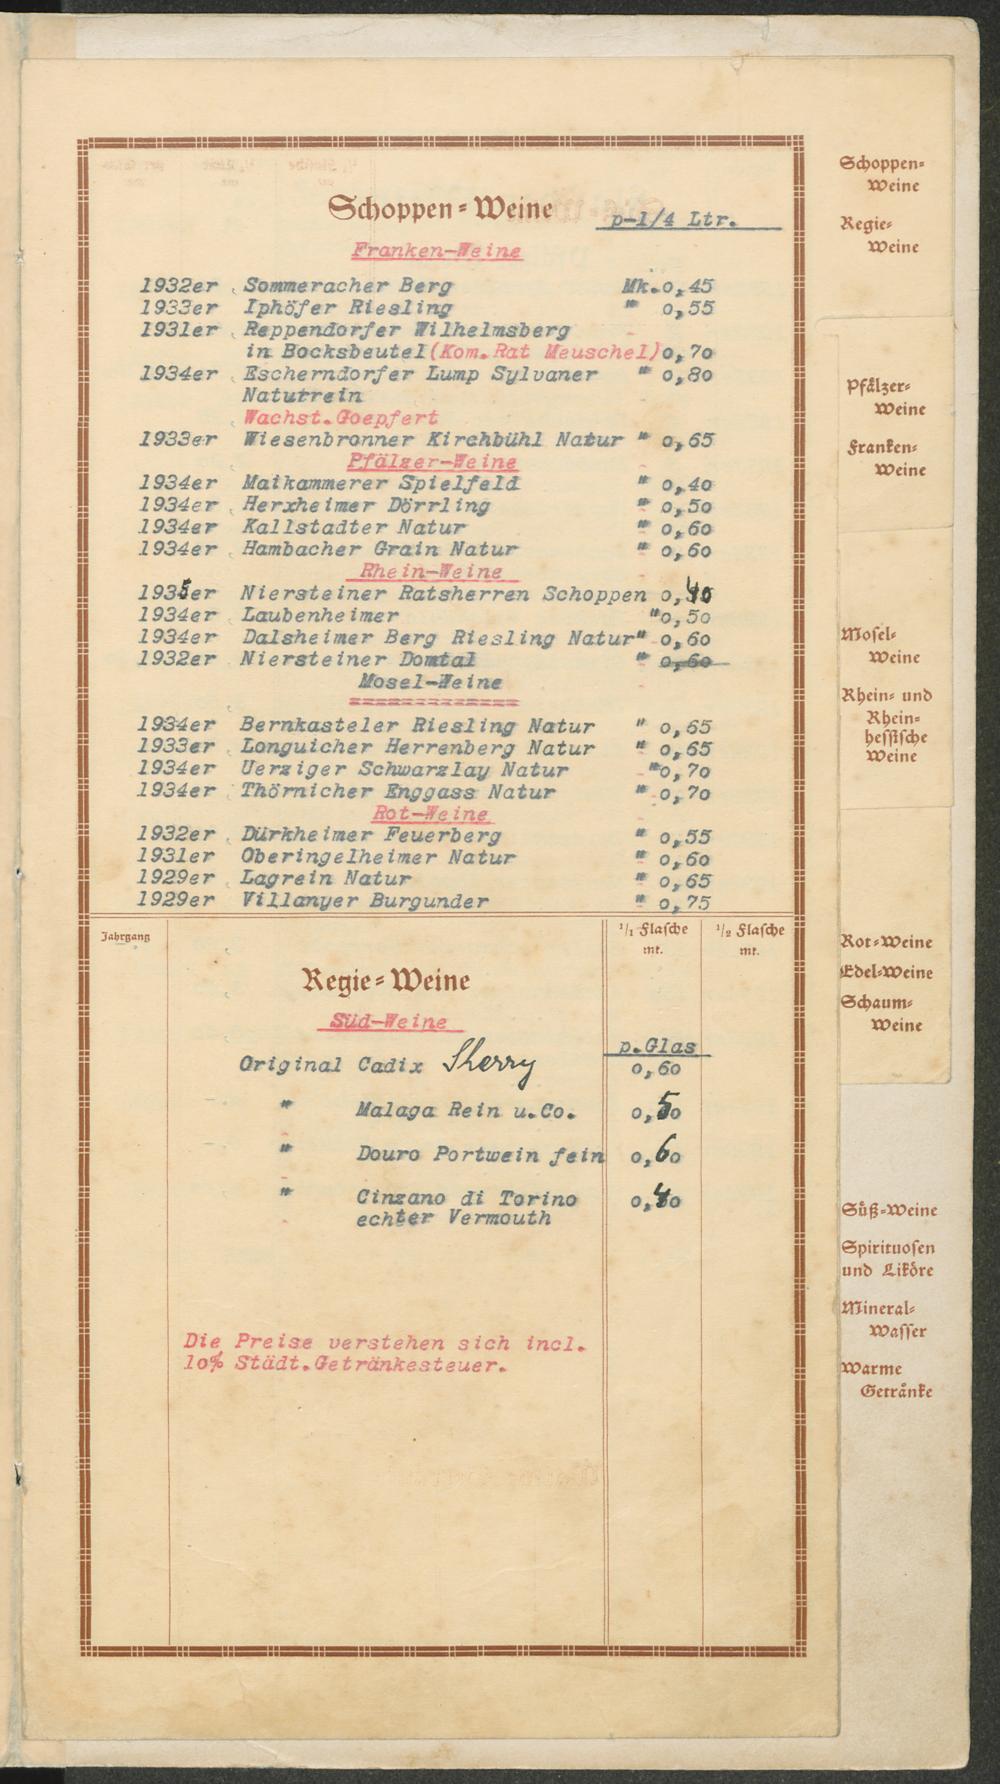 Schoppen-Weine p-1/4 Ltr.
Franken-Weine
1932er Sommeracher Berg Mk.0,45
1933er Iphöfer Riesling " 0,55
1931er Reppendorfer Wilhelmsberg
in Bocksbeutel(Kom.Rat Meuschel)0,70
1934er Escherndorfer Lump Sylvaner " 0,80
Naturrein
Wachst.Goepfert
1933er Wiesenbronner Kirchbühl Natur " 0,65
Pfälzer-Weine
1934er Maikammerer Spielfeld " 0,40
1934er Herxheimer Dörrling " 0,50
1934er Kallstadter Natur " 0,60
1934er Hambacher Grain Natur " 0,60
Rhein-Weine
1935er Niersteiner Ratsherren Schoppen 0,40
1934er Laubenheimer "0,50
1934er Dalsheimer Berg Riesling Natur" 0,60
1932er Niersteiner Domtal " 0,60
Mosel-Weine
1934er Bernkasteler Riesling Natur " 0,65
1933er Longuicher Herrenberg Natur " 0,65
1934er Uerziger Schwarzlay Natur "0,70
1934er Thörnicher Enggass Natur " 0,70
Rot-Weine
1932er Dürkheimer Feuerberg " 0,55
1931er Oberingelheimer Natur " 0,60
1929er Lagrein Natur " 0,65
1929er Villanyer Burgunder " 0,75
Jahrgang 1/1 Flasche 1/2 Flasche
mk. mk.
Regie-Weine
Süd-Weine
p.Glas
Original Cadix Sherry 0,60
" Malaga Rein u.Co. 0,50
" Douro Portwein fein 0,60
" Cinzano di Torino 0,40
echter Vermouth
Die Preise verstehen sich incl.
10% Städt.Getränkesteuer.
Schoppen-
Weine
Regie-
Weine
Pfälzer-
Weine
Franken-
Weine
Mosel-
Weine
Rhein- und
Rhein-
hessische
Weine
Rot-Weine
Edel-Weine
Schaum-
Weine
Süß-Weine
Spirituosen
und Liköre
Mineral-
Wasser
Warme
Getränke